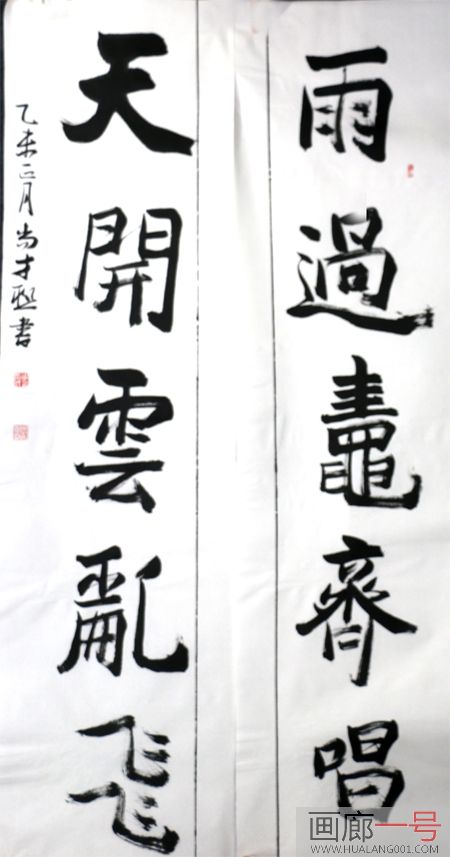 雨過鼃齊唱
天開雲亂飛
乙未正月尚才熙書
画廊一号
WWW.HUALANG001.COM